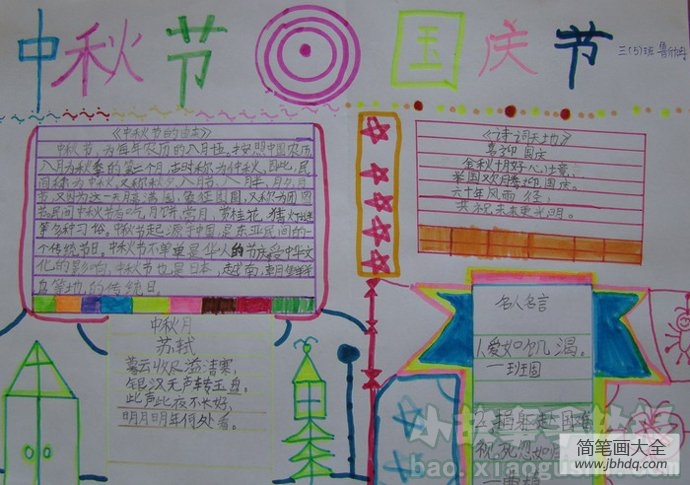 中秋节 国庆节
三(5)班
《中秋节的由来》
中秋节,为每年农历的八月
八月为秋季的第二个月,古时称为仲秋,因此,民
间称为中秋,又称秋夕、八月节、八月半、月夕
节,又因为这一天月亮满圆,象征团圆,又称为团圆
节。民间中秋节有吃月饼,赏月,赏桂花,猜灯谜
等多种习俗。中秋节起源于中国,是东亚民间的一
个传统节日。中秋节不单单是华人的节庆受中华文
化的影响,中秋节也是日本,越南,朝鲜
等地的传统日
《诗词天地》
喜迎国庆
金秋十月好心情,
举国欢腾迎国庆。
六十年风雨径,
共和未来更光明。
中秋月
苏轼
暮云收尽溢清寒,
银汉无声转玉盘。
此声此夜不长好,
明月明年何处看。
名人名言
人爱如饥渴。
一班固
二捐躯赴国难
视死忽如归
一曹植
简笔画大全
www.jbhdq.com
bao.xiaogushi.com